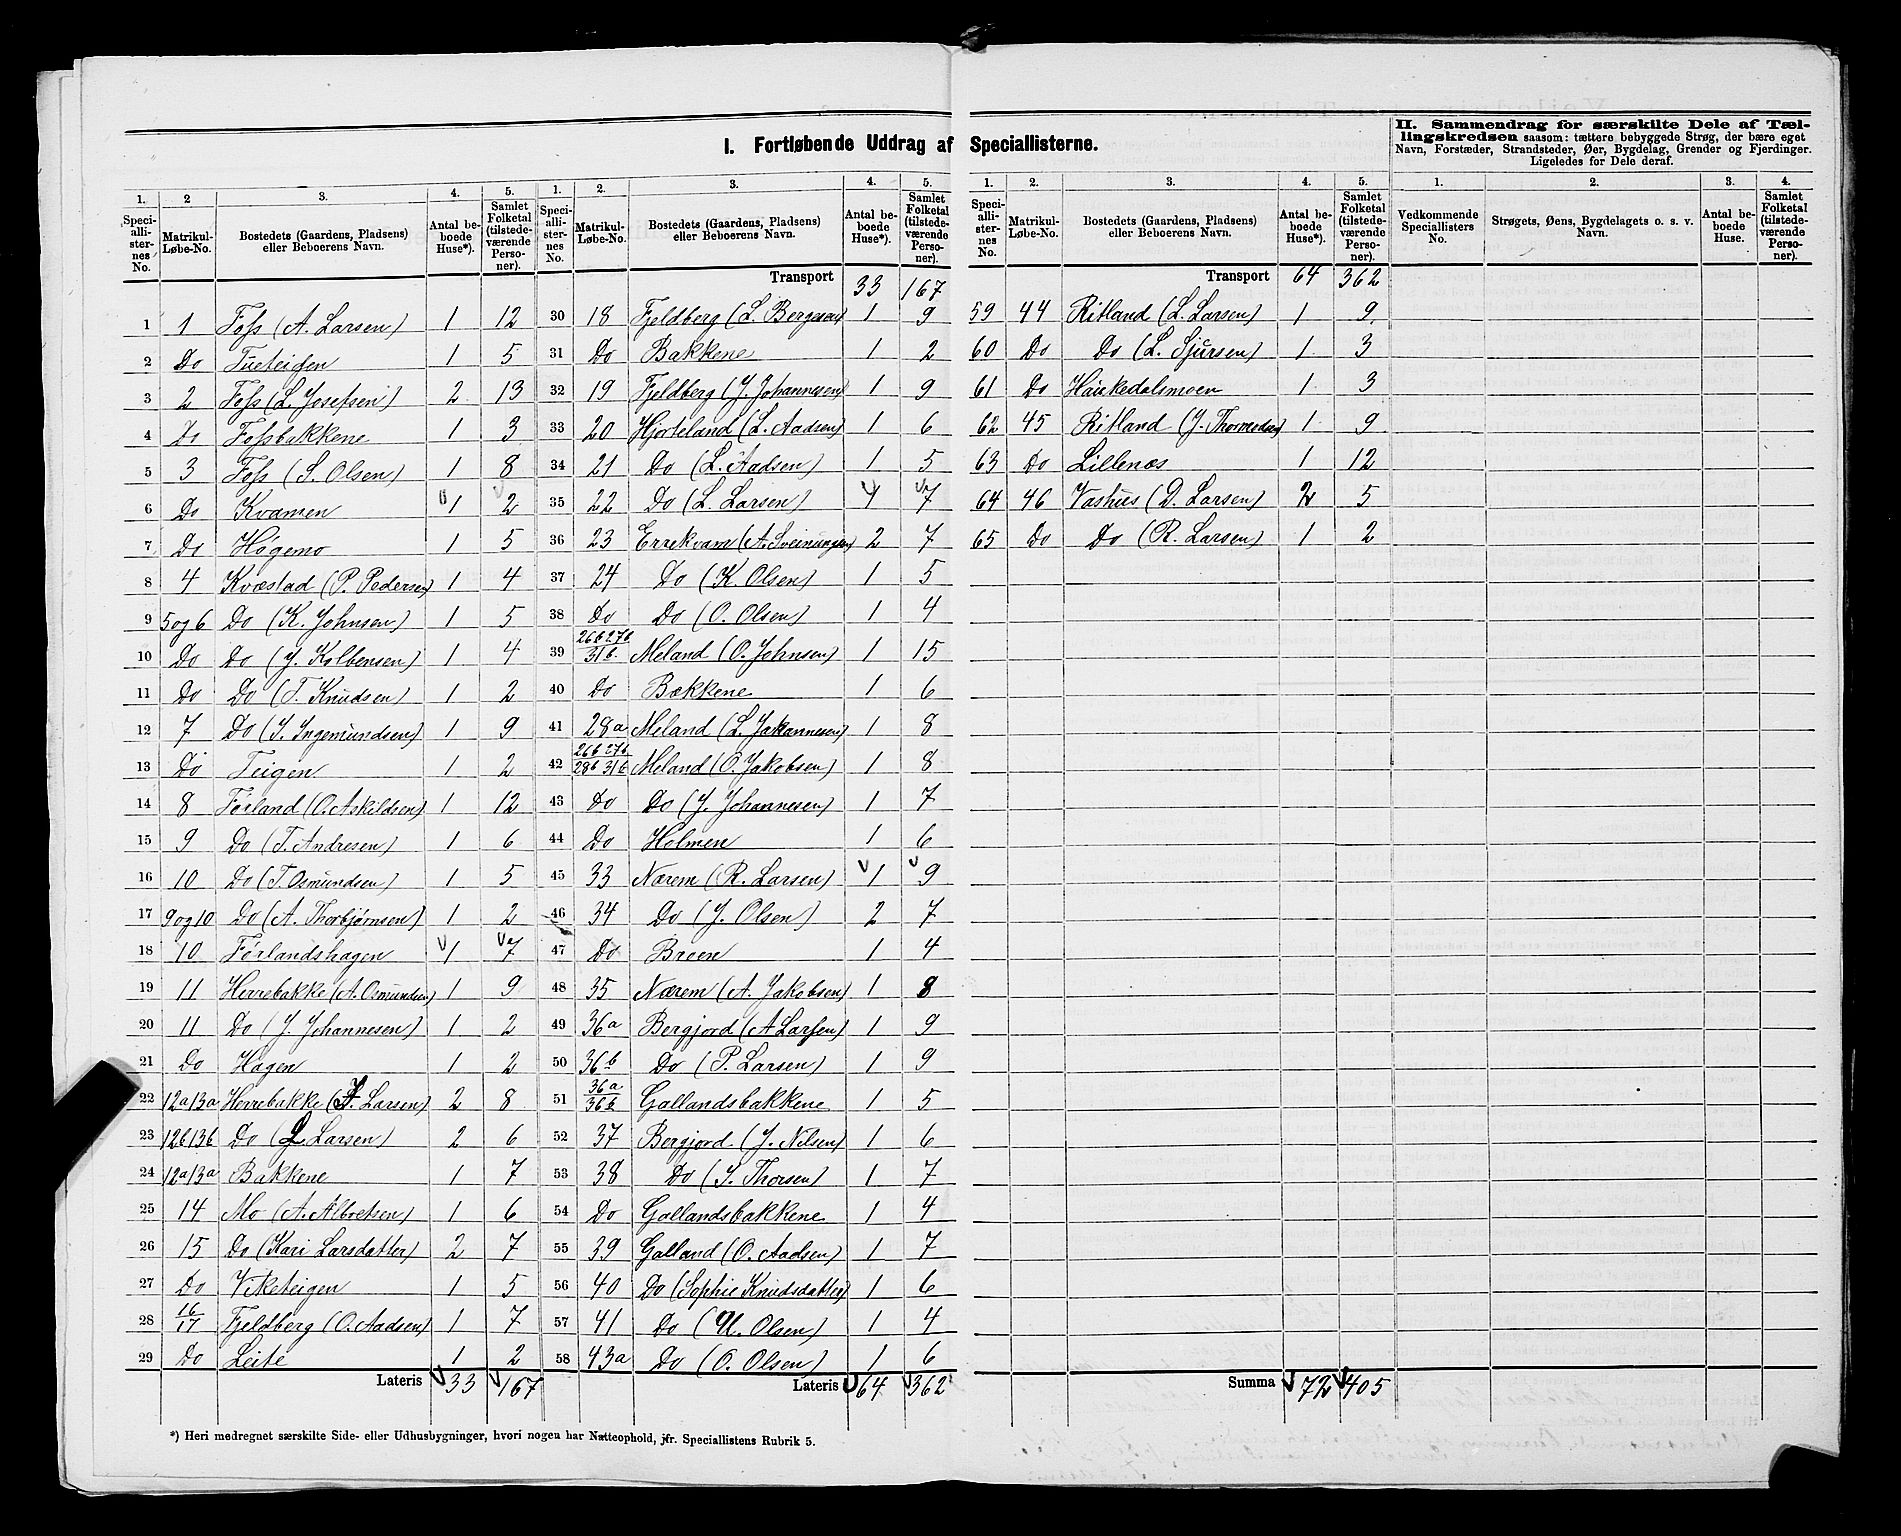 I. Fortløbende Uddrag af Speciallisterne.
II. Sammendrag for særskilte Dele af Tæl-
lingskredsen saasom: tættere bebyggede Strøg, der bære eget
Navn, Forstæder, Strandsteder, Øer, Bygdelag, Grender og Fjerdinger.
Ligeledes for Dele deraf.
1. 2 3. 4. 5.
Speciallisternes No. Matrikul-Løbe-No. Bostedets (Gaardens, Pladsens) eller Beboerens Navn. Antal beboede Huse*). Samlet Folketal (tilstedeværende Personer).
1 1 Foss (A. Larsen) 1 12
2 Do Tueteigen 1 5
3 2 Foss (L. Josefsen) 2 13
4 Do Fossbakkene 1 3
5 3 Foss (S. Olsen) 1 8
6 Do Kvamen 1 2
7 Do Høgemo 1 5
8 4 Kvæstad (P. Pedersen) 1 4
9 5og6 Do (K. Johnsen) 1 5
10 Do Do (J. Kolbensen) 1 4
11 Do Do (T. Knudsen) 1 2
12 7 Do (I. Ingemundsen) 1 9
13 Do Teigen 1 2
14 8 Førland (O. Askildsen) 1 12
15 9 Do (T. Andresen) 1 6
16 10 Do (T. Osmundsen) 1 5
17 9og10 Do (A. Thorbjørnsen) 1 2
18 10 Førlandshagen 1 7
19 11 Herrebakke (A. Osmundsen) 1 9
20 11 Do (J. Johannesen) 1 2
21 Do Hagen 1 2
22 12a13a Herrebakke (J. Larsen) 2 8
23 12b13b Do (L. Larsen) 2 6
24 12a13a Bakkene 1 7
25 14 Mo (A. Albretsen) 1 6
26 15 Do (Kari Larsdatter) 2 7
27 Do Viketeigen 1 5
28 16/17 Fjeldberg (O. Aadsen) 1 7
29 Do Leite 1 2
Lateris 33 167
1. 2. 3. 4. 5.
Speciallisternes No. Matrikul-Løbe-No. Bostedets (Gaardens, Pladsens) eller Beboerens Navn. Antal beboede Huse*). Samlet Folketal (tilstedeværende Personer).
Transport 33 167
30 18 Fjeldberg (L. Bergesen) 1 9
31 Do Bakkene 1 2
32 19 Fjeldberg (J. Johannesen) 1 9
33 20 Hjorteland (L. Aadsen) 1 6
34 21 Do (L. Aadsen) 1 5
35 22 Do (L. Larsen) 1 7
36 23 Errekvam (A. Sveinungsen) 2 7
37 24 Do (K. Olsen) 1 5
38 Do Do (O. Olsen) 1 4
39 26b 27b/31b. Meland (O. Johnsen) 1 15
40 Do Bækkene 1 6
41 28a Meland (L. Johannesen) 1 8
42 26b 27b/28b 31b Meland (O. Jakobsen) 1 8
43 Do Do (J. Johannesen) 1 7
44 Do Holmen 1 6
45 33 Nærem (R. Larsen) 1 9
46 34 Do (J. Olsen) 2 7
47 Do Breen 1 4
48 35 Nærem (A. Jakobsen) 1 8
49 36a Bergjord (A Larsen) 1 9
50 36b Do (P. Larsen) 1 9
51 36a/36b Gallandsbakkene 1 5
52 37 Bergjord (J. Nilsen) 1 6
53 38 Do (I. Thorsen) 1 7
54 Do Gallandsbakkene 1 4
55 39 Galland (O. Aadsen) 1 7
56 40 Do (Sophie Knudsdatter) 1 6
57 41 Do (U. Olsen) 1 4
58 43a Do (O. Olsen) 1 6
Lateris 64 362
1. 2. 3. 4. 5.
Speciallisternes No. Matrikul-Løbe-No. Bostedets (Gaardens, Pladsens) eller Beboerens Navn. Antal beboede Huse*). Samlet Folketal (tilstedeværende Personer).
Transport 64 362
59 44 Ritland (L. Larsen) 1 9
60 Do Do (L. Sjursen) 1 3
61 Do Haukedalsmoen 1 3
62 45 Ritland (J. ) 1 9
63 Do Lillenæs 1 12
64 46 Vashus (D. Larsen) 2 5
65 Do Do (R. Larsen) 1 2
Summa 72 405
1. 2. 3. 4.
Vedkommende Speciallisters No. Strøgets, Øens, Bygdelagets o. s. v. Navn. Antal beboede Huse. Samlet Folketal (tilstedeværende Personer).
*) Heri medregnet særskilte Side- eller Udhusbygninger, hvori nogen har Natteophold, jfr. Speciallistens Rubrik 5.